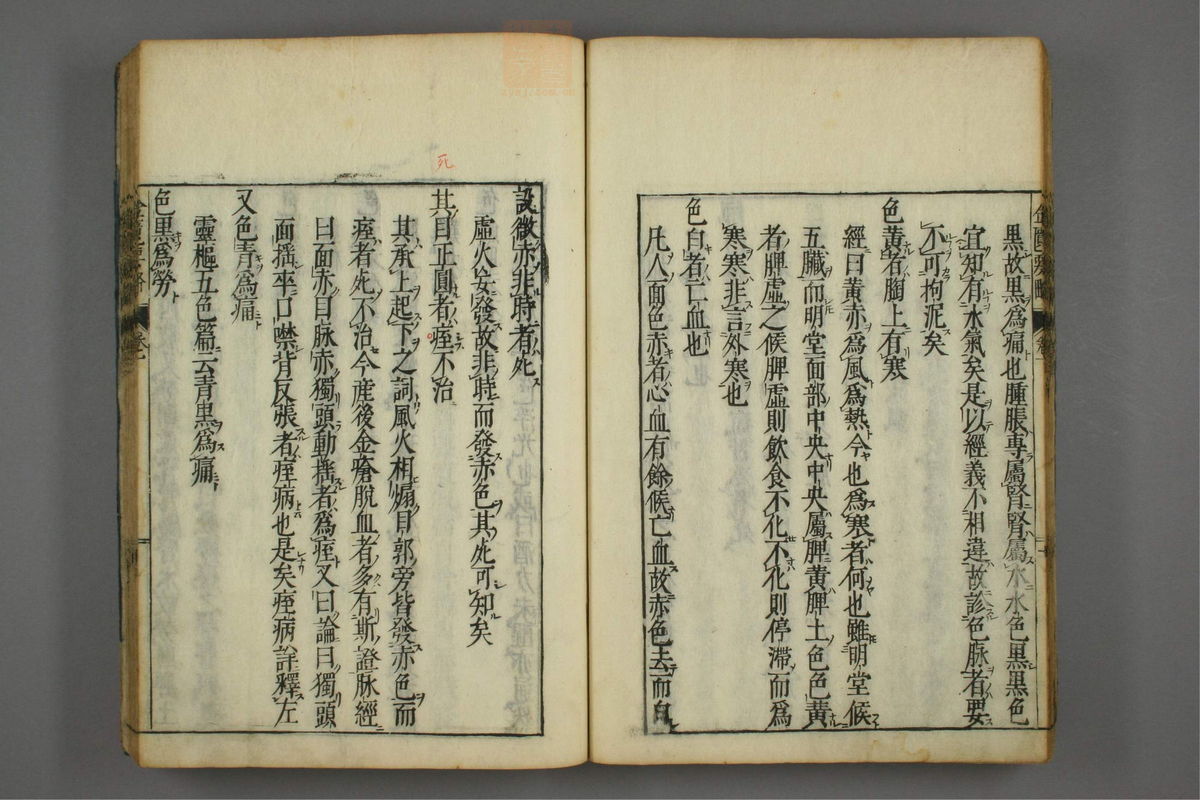 黒故黒為痛也腫脹專屬腎腎屬水水色黒黒色
宜知有水氣矣是以經義不相違故診色脉者要
不可拘泥矣
色黄者胸上有寒
經曰黄赤為風為熱今也為寒者何也雖明堂候
五臟而明堂面部中央中央屬脾黄脾土色色黄
者脾虚之候脾虚則飲食不化不化則停滯而為
寒寒非言外寒也
色白者亡血也
凡人面色赤者心血有餘候亡血故赤色去而白
設微赤非時者死
虚火妄發故非時而發赤色其死可知矣
死
其目正圓者痓不治
其承上起下之詞風火相煽目郭旁皆發赤色而
痓者死不治今産後金瘡脫血者多有斯證脉經
曰面赤目脉赤獨頭動揺者為痓又曰論曰獨頭
面揺卒口噤背反張者痓病也是矣痓病詳釋左
又色青為痛
靈樞五色篇云青黒為痛
色黒為勞